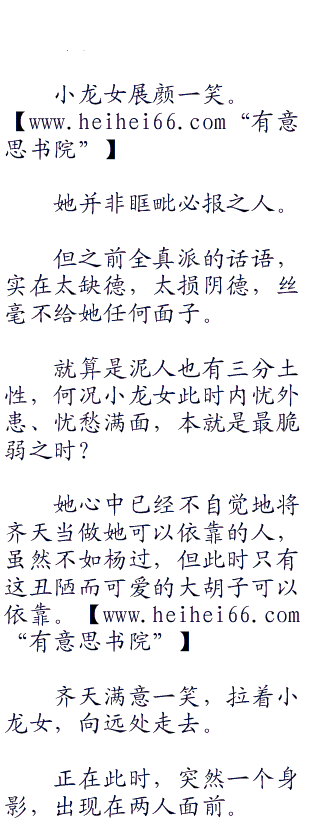 小龙女展颜一笑。
【www.heihei66.com“有意
思书院”】
她并非眶毗必报之人。
但之前全真派的话语，
实在太缺德，太损阴德，丝
毫不给她任何面子。
就算是泥人也有三分土
性，何况小龙女此时内忧外
患、忧愁满面，本就是最脆
弱之时？
她心中已经不自觉地将
齐天当做她可以依靠的人，
虽然不如杨过，但此时只有
这丑陋而可爱的大胡子可以
依靠。【www.heihei66.com
“有意思书院”】
齐天满意一笑，拉着小
龙女，向远处走去。
正在此时，突然一个身
影，出现在两人面前。